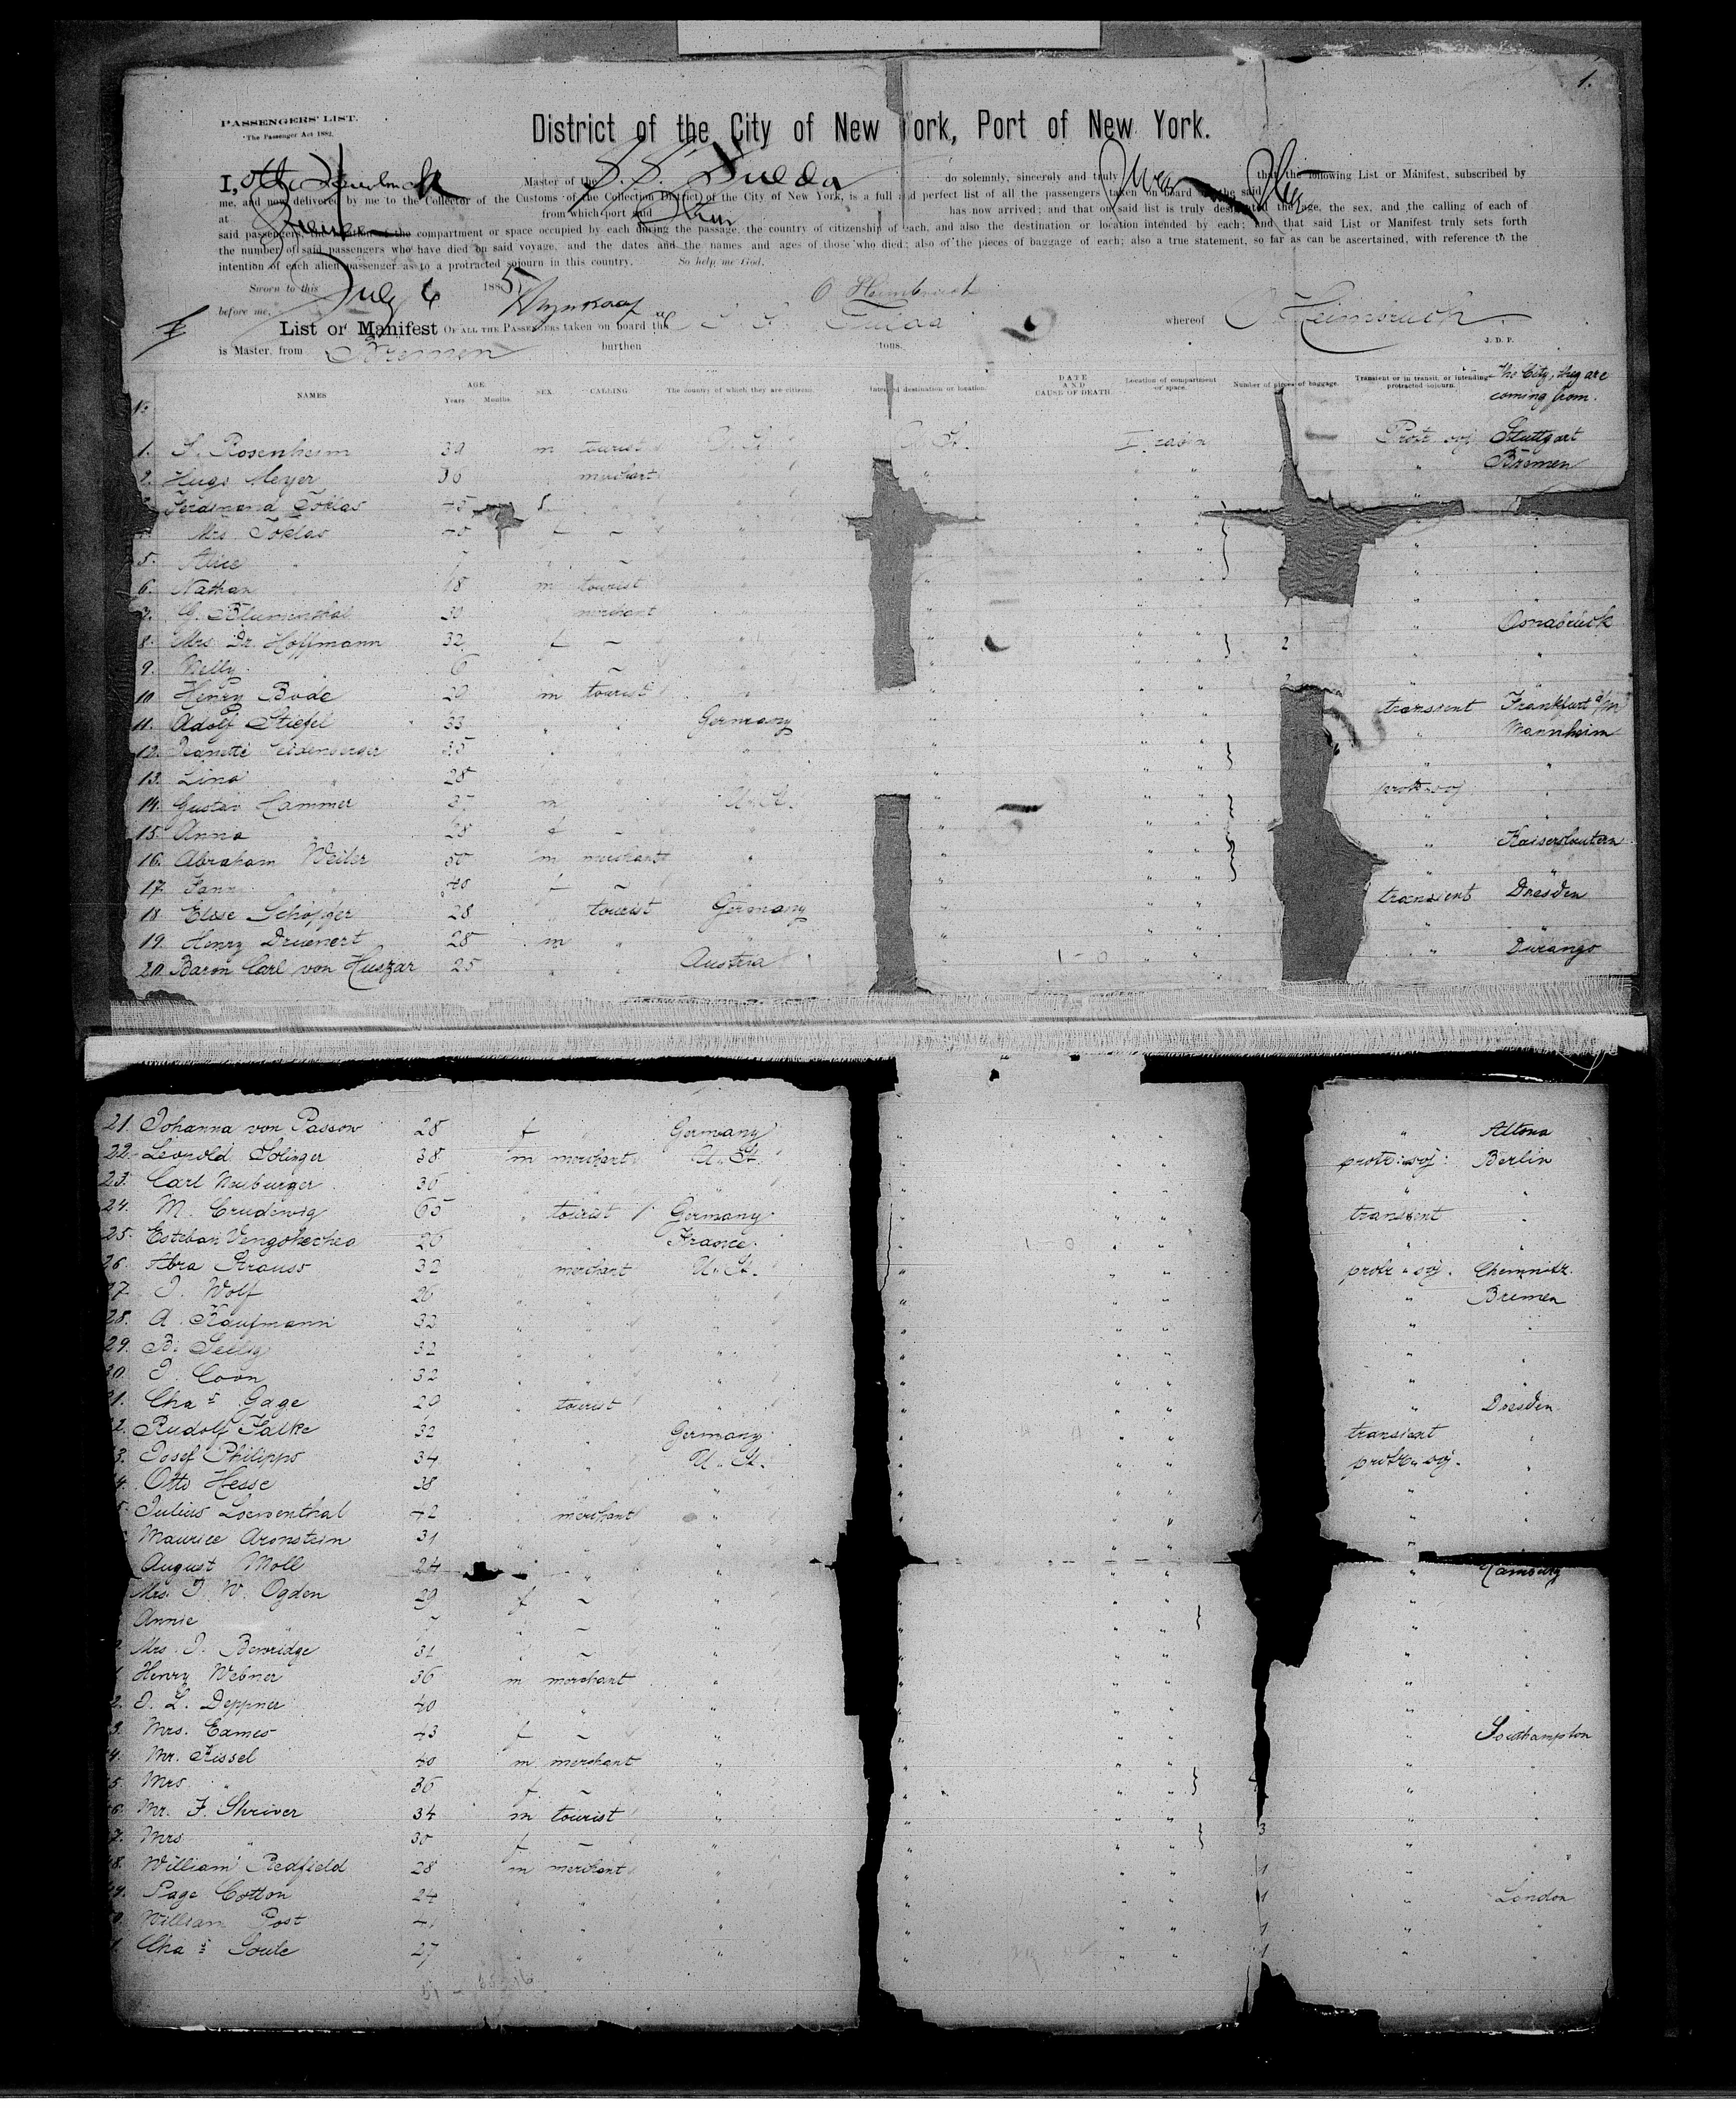 1.
PASSENGERS' LIST.
The Passenger Act 1882.
District of the City of New York, Port of New York.
I, Otto Heimbruch Master of the S.S. Fulda do solemnly, sincerely and truly swear that the following List or Manifest, subscribed by
me, and now delivered by me to the Collector of the Customs of the Collection District of the City of New York, is a full and perfect list of all the passengers taken on board of the said
at Bremen from which port said Str has now arrived; and that on said list is truly designated the age, the sex, and the calling of each of
said passengers, the location of the compartment or space occupied by each during the passage, the country of citizenship of each, and also the destination or location intended by each; and that said List or Manifest truly sets forth
the number of said passengers who have died on said voyage, and the dates and the names and ages of those who died; also of the pieces of baggage of each; also a true statement, so far as can be ascertained, with reference to the
intention of each alien passenger as to a protracted sojourn in this country. So help me God.
Sworn to this July 6 1885
before me, O Heimbruch
List or Manifest OF ALL THE PASSENGERS taken on board the S. S. Fulda whereof O Heimbruch.
is Master, from Bremen burthen tons. J. D. P.
NAMES AGE Years. Months. SEX. CALLING The country of which they are citizens. Intended destination or location. DATE AND CAUSE OF DEATH. Location of compartment or space. Number of pieces of baggage. Transient or in transit, or intending protracted sojourn. The City, they are coming from.
1. S. Rosenheim 39 m tourist U. St. U. St. I. cabin Protr. soj Stuttgart
2. Hugo Meyer 36 " merchant " " " " " Bremen
Ferdinand Toklas 45 " " " "
4. Mrs. Toklas 40 f ~ " " " " "
5. Alice " 7 " ~ " " " "
6. Nathan " 18 m tourist " " " "
7. G. Blumenthal 30 " merchant " " " " Osnabrück
8. Mrs. Dr. Hoffmann 32 f ~ " " " " 2 " "
9. Nelly " 6 " ~ " " " "
10. Henry Bode 29 m tourist " " " " transient Frankfurt a/M
11. Adolf Stiefel 33 " " Germany " " " " Mannheim
12. Jeanette Seidenberger 35 " " " " " " "
13. Lina " 28 " " " " " " protr. soj "
14. Gustav Hammer 37 m " U. St. " " " " "
15. Anna " 28 f ~ " " " " " Kaiserslautern
16. Abraham Weiler 50 m merchant " " " " " "
17. Fanny " 40 f ~ " " " " transient Dresden
18. Elise Schöpfer 28 " tourist Germany " " " " "
19. Henry Druenert 28 m " " " " " " Durango
20. Baron Carl von Huszar 25 " " Austria 1-0 " "
21. Johanna von Passow 28 f " Germany " " " " Altona
22. Leopold Solinger 38 m merchant U. St. " " " protr. soj. Berlin
23. Carl Neuburger 36 " " " " " " " "
24. M. Crudewig 65 " tourist Germany " " " transient "
25. Esteban Vengohechea 26 " " France. " 1 0 " " " "
26. Abra Strauss 32 " merchant U. St. " " " protr. soj. Chemnitz.
27. J. Wolf 26 " " " " " " " Bremen
28. A. Kaufmann 32 " " " " " " " "
29. B. Seelig 32 " " " " " " " "
30. J. Coon 32 " " " " " " " "
31. Chas Gage 29 " tourist " " " " " Dresden
32. Rudolf Falke 32 " " Germany " " " transient "
33. Josef Philipps 34 " " U. St. " " " protr. soj. "
34. Otto Hesse 38 " " " " " " " "
5. Julius Loewenthal 42 " merchant " " " " " "
Maurice Aronstein 31 " " " " " " " "
August Moll 24 " " " " " " " Hamburg
Mrs. J. W. Ogden 29 f ~ " " " " " "
Annie " 7 " ~ " " " " " "
Mrs. J. Benridge 31 " ~ " " " " " "
1. Henry Webner 36 m merchant " " " " " "
2. J. L. Deppner 40 " " " " " " " "
3. Mrs. Eames 43 f ~ " " " " " Southampton
4. Mr. Kissel 40 m merchant " " " " " "
5. Mrs. " 36 f ~ " " " " " "
6. Mr. F. Shriver 34 m tourist " " " " " "
7. Mrs. " 30 f ~ " " " " 3 " "
48. William Redfield 28 m merchant " " " " 1 " "
49. Page Cotton 24 " " " " " " 1 " London
William Post 41 " " " " " " 1 " "
1. Chas Soule 27 " " " " " " 1 " "